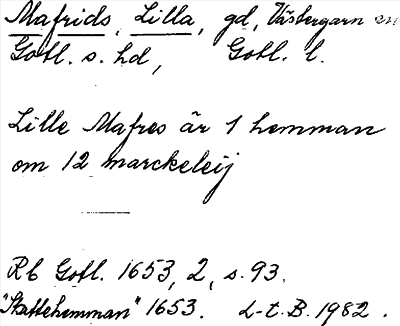 Mafrids, Lilla, gd, Västergarn sn
Gotl. s. hd, Gotl. l.
Lille Mafres är 1 hemman
om 12 marckeleij
Rb Gotl. 1653, 2, s. 93.
"Skattehemman" 1653. L-t. B. 1982.